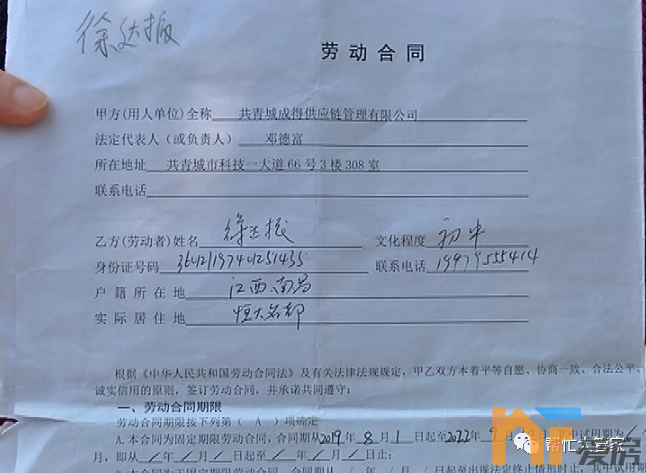 徐达振
劳动合同
甲方(用人单位)全称 共青城成得供应链管理有限公司
法定代表人（或负责人） 邓德富
所在地址 共青城市科技一大道66号3楼308室
联系电话
乙方(劳动者)姓名 徐达振 文化程度 初中
身份证号码 联系电话 19979555414
户籍所在地 江西南昌
实际居住地 恒大名都
根据《中华人民共和国劳动合同法》及有关法律法规规定，甲乙双方本着平等自愿、协商一致、合法公平、
诚实信用的原则，签订劳动合同，并承诺共同遵守：
一、劳动合同期限
劳动合同期限按下列第（ A ）项确定
A.本合同为固定期限劳动合同，合同期从2019年8月1日起至2022年
月，即从 年 月 日起至 年 月 日止；
帮忙大管家
爱房